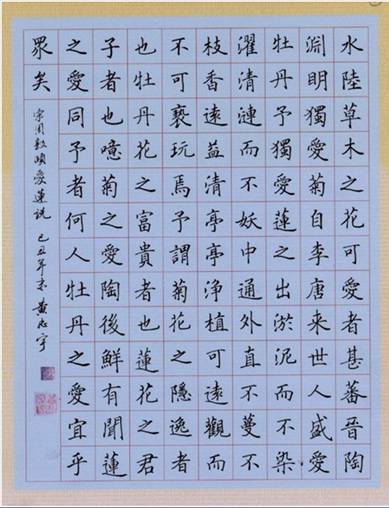 水陸草木之花可愛者甚蕃晉陶
淵明獨愛菊自李唐来世人盛愛
牡丹予獨愛蓮之出淤泥而不染
濯清漣而不妖中通外直不蔓不
枝香遠益清亭亭淨植可遠觀而
不可褻玩焉予謂菊花之隱逸者
也牡丹花之富貴者也蓮花之君
子者也噫菊之愛陶後鮮有聞蓮
之愛同予者何人牡丹之愛宜乎
眾矣
宋周敦頤愛蓮説 己丑年末 黄